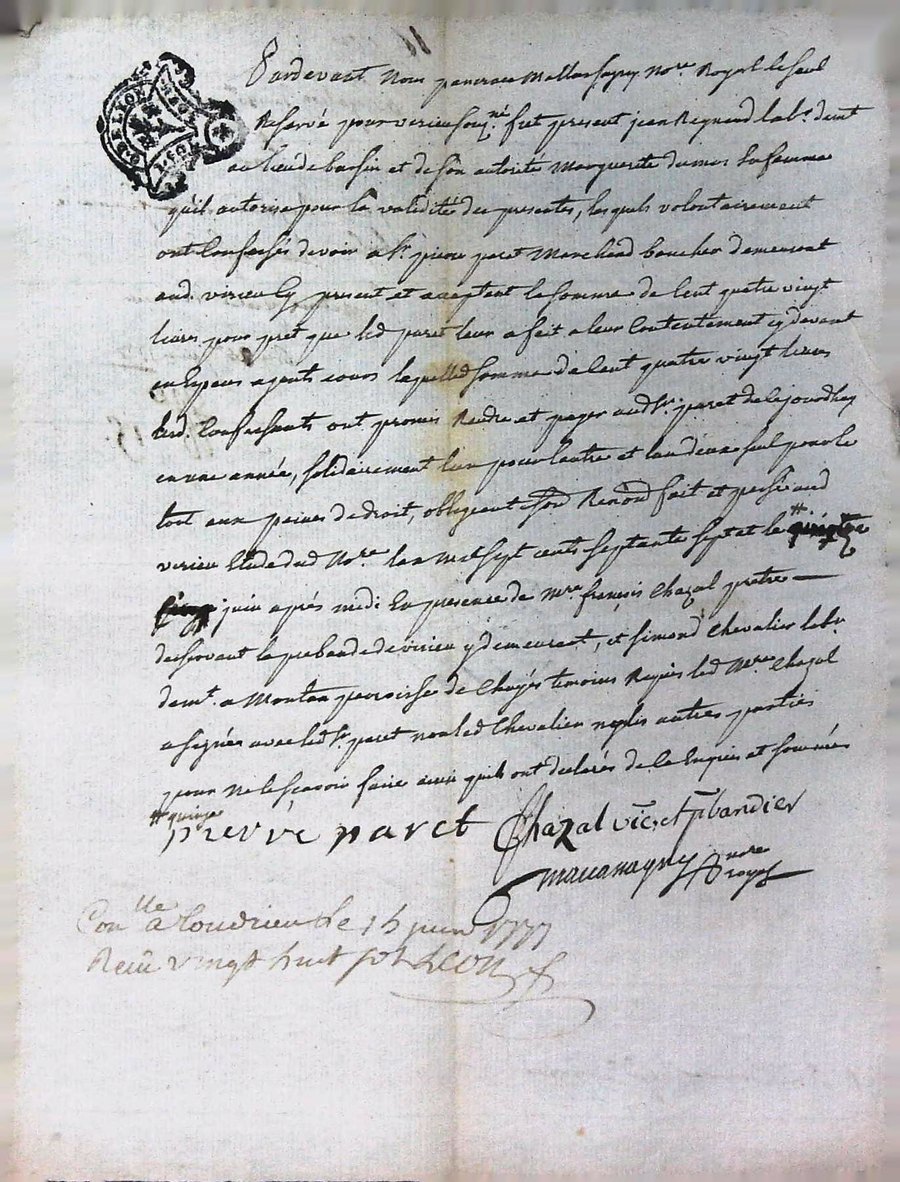 Pardevant Nous No.re Royal le seul
Reservé pour verieu souz.né fut present jean Reynaud lab.r demt
au lieu de bassin et de son autorité Marguerite dumas sa femme
qu'il autorise pour la validité des presentes, lesquels volontairement
ont Confessés devoir a s.r pierre paret Marchand boucher demeurant
aud. virieu Cy present et acceptant la somme de Cent quatre vingt
livres pour pret que led paret leur a fait a leur Contentement cy devant
en Especes ayants cours laquelle somme de Cent quatre vingt livres
lesd. Confessants ont promis Rendre et payer aud s.r paret de Cejourdhuy
en une année, solidairement l'un pour l'autre et l'un d'eux seul pour le
tout aux peines de droit, obligeant Renond fait et passé aud
virieu Etude dud No.re l'an mil sept cents septante sept et le
juin après midi En presence de m.re françois Chazal pretre
desservant la prebande de virieu y demeurant, et simond Chevalier lab.r
dem.t a Montan parroisse de Chuyés temoins Requis led M.re Chazal
a signés avec led s.r paret non led Chevalier ny les autres parties
pour ne le sçavoir faire ainsi qu'ils ont declarés de Ce Enquis et sommés
# quinze
pierre paret Chazal vic. et pbandier
no.re
royal
Con.lle a Condrieu le 15 juin 1777
Reçu vingt huit sols